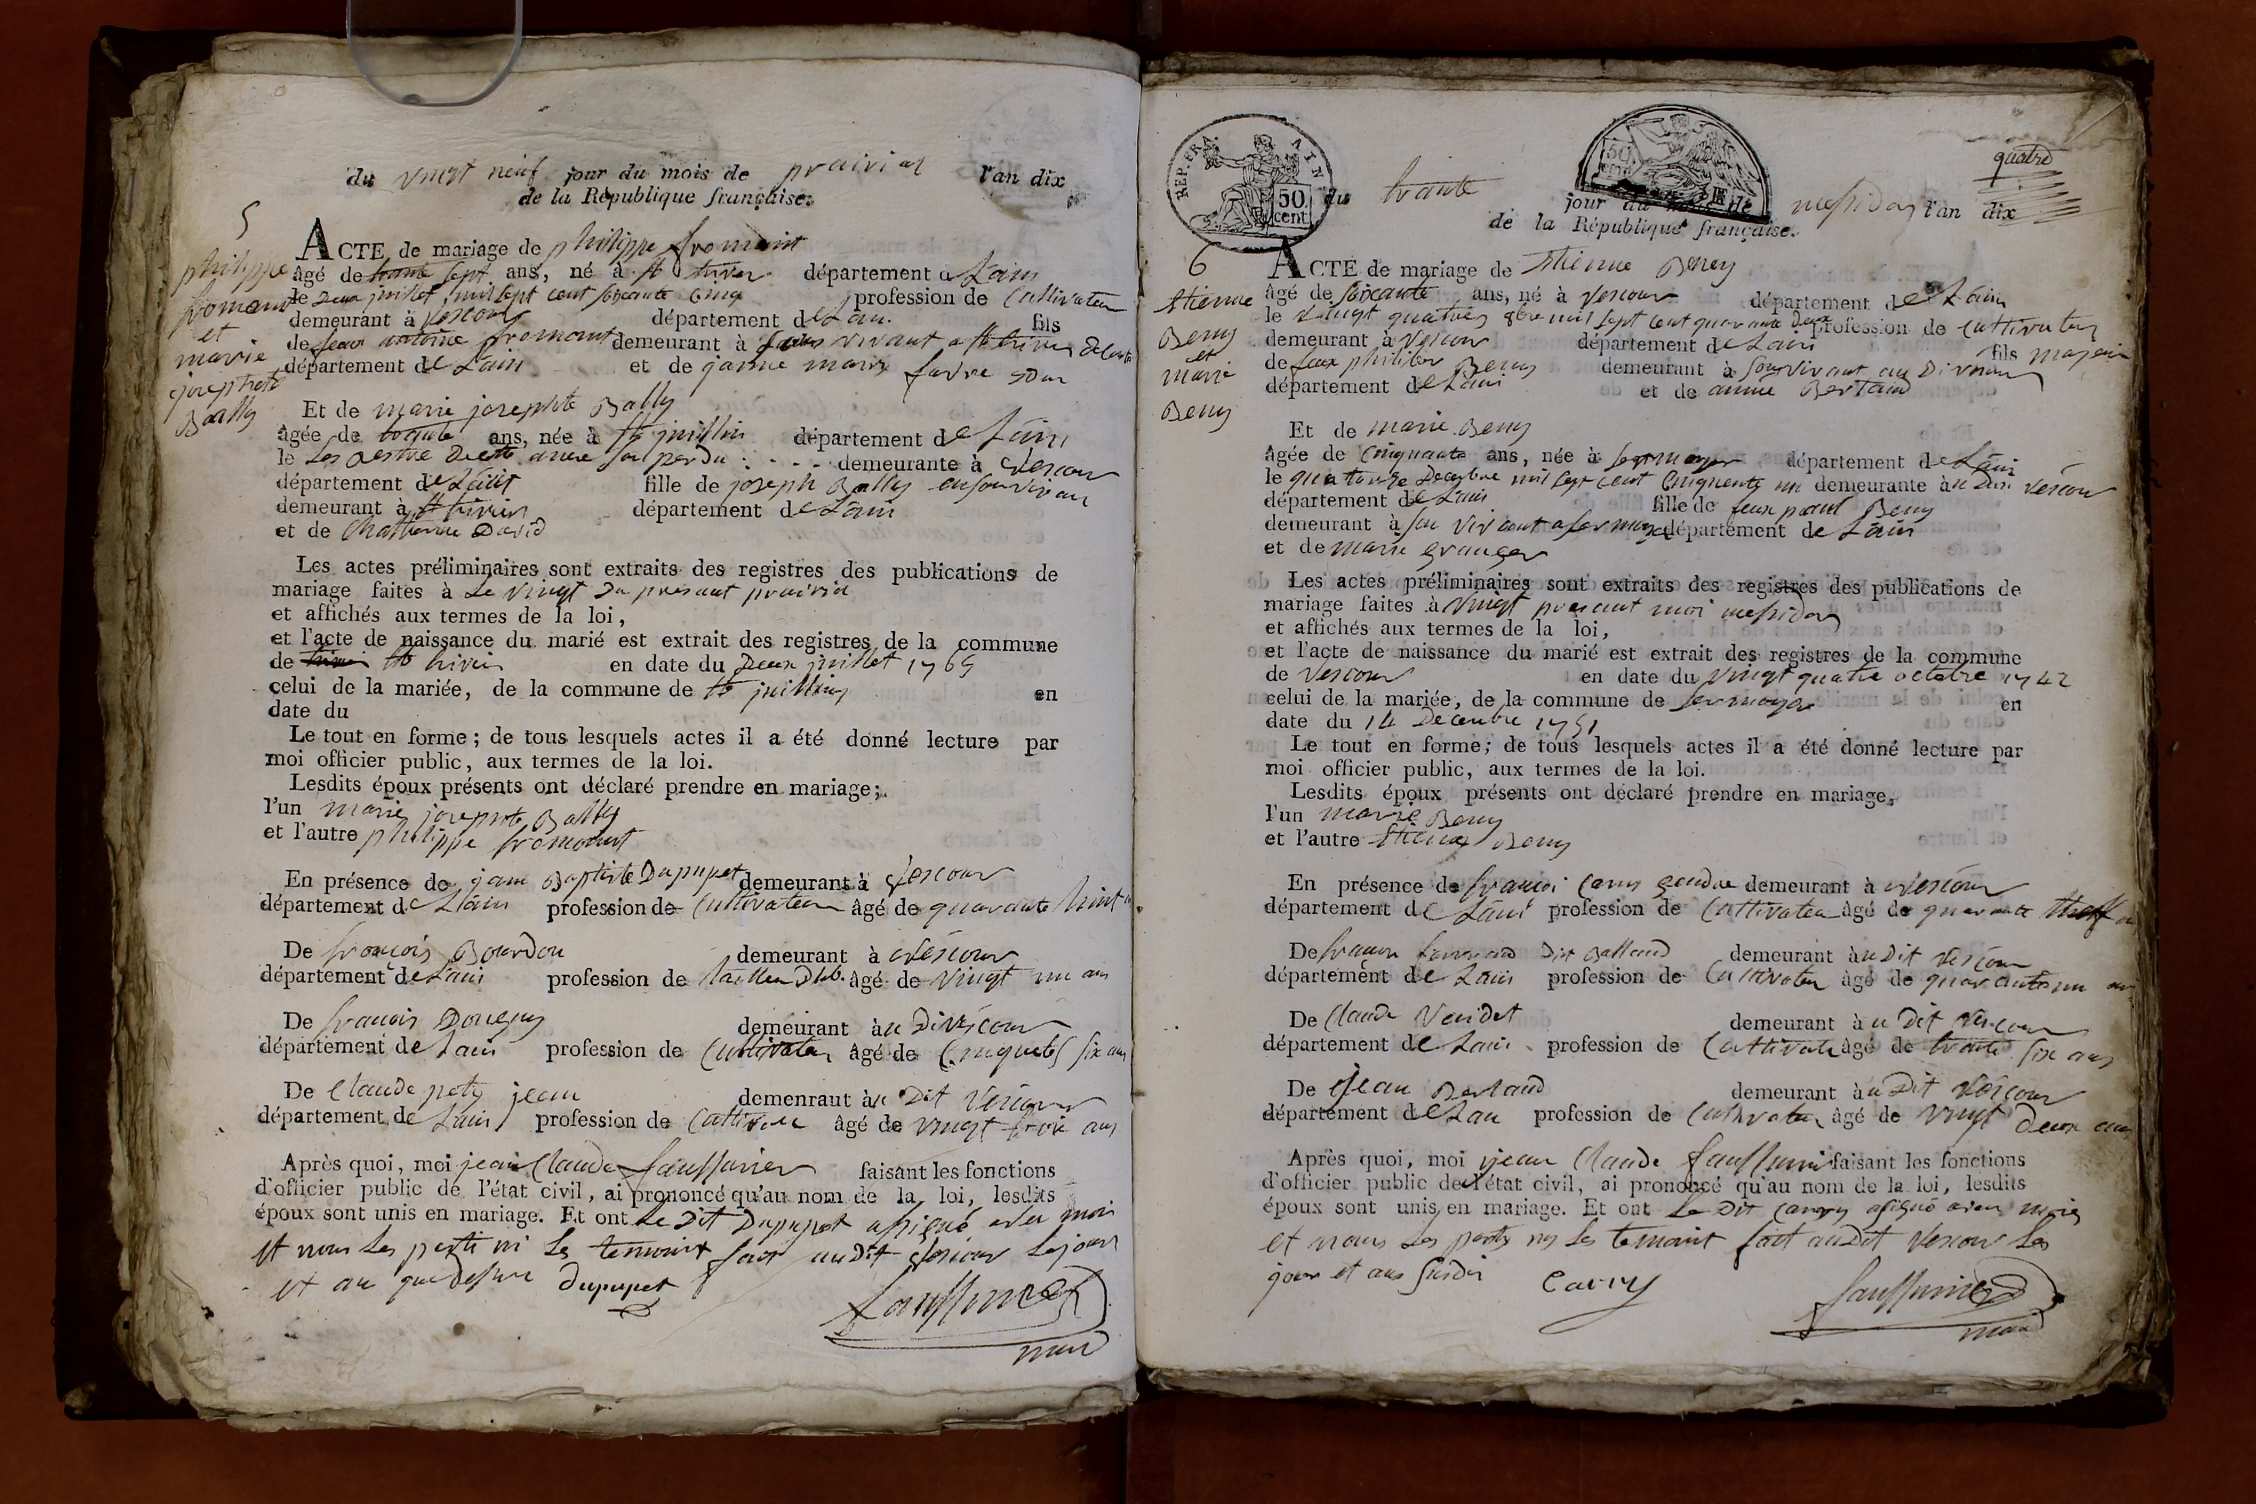 du vingt neuf jour du mois de prairial l'an dix
de la République française.
5
philippe
fromant
et
marie
josephte
Bally
ACTE de mariage de philippe fromant
âgé de trante sept ans, né à St trivier département de Lain
le deux juillet mil sept cent soixante cinq profession de Cultivateur
demeurant à vescour département de Lain. fils
de feux antoine fromont demeurant à vivant a St trivier
département de Lain et de janne marie favre
Et de marie josephte Bally
âgée de trante ans, née à St juillin département de Lain
le Les perdu . . . . demeurante à vescour
département de Lain fille de joseph Bally
demeurant à St trivier département de Lain
et de Chatterine David
Les actes préliminaires sont extraits des registres des publications de
mariage faites à Le vingt du presant prairial
et affichés aux termes de la loi,
et l'acte de naissance du marié est extrait des registres de la commune
de St trivier en date du Deux juillet 1765
celui de la mariée, de la commune de St juillin en
date du
Le tout en forme ; de tous lesquels actes il a été donné lecture par
moi officier public, aux termes de la loi.
Lesdits époux présents ont déclaré prendre en mariage ;
l'un marie josephte Bally
et l'autre philippe fromont
En présence de jean Baptiste Dupupet demeurant à vescour
département de Lain profession de Cultivateur âgé de quarante huit
De françois Bourdon demeurant à vescour
département de Lain profession de âgé de vingt un ans
De francois Dougny demeurant à u Di vescour
département de Lain profession de Cultivateur âgé de Cinquante six ans
De Claude petit jean demenraut à u Dit vescour
département de Lain profession de Cultivateur âgé de vingt trois ans
Après quoi, moi jean Claude faussurier faisant les fonctions
d'officier public de l'état civil, ai prononcé qu'au nom de la loi, lesdits
époux sont unis en mariage. Et ont Le Dit Dupupet asigné avec moi
et non Les parti ni Les temoint fait audit vescour Les jour
et an que dessus Dupupet
faussurier
maire
REP. FRA. 50 cent.
quatre
du trante jour du mois de messidor l'an dix
de la République française.
6
Etienne
Beny
et
marie
Beny
ACTE de mariage de Etienne Beny
âgé de soixante ans, né à vescour département de Lain
le vingt quatres 8bre mil sept cent quarante deux profession de cultivateur
demeurant à vescour département de Lain fils majeur
de feux philiber Beny demeurant à son vivant au Di vescour
département de Lain et de annne Bertaud
Et de marie Beny
âgée de Cinquante ans, née à sermoyer département de Lain
le quatorze Decembre mil sept cent Cinquente un demeurante à u Dit vescour
département de Lain fille de feux paul Beny
demeurant à son vivant a sermoyer département de Lain
et de marie granger
Les actes préliminaires sont extraits des registres des publications de
mariage faites à vingt presant moi messidor
et affichés aux termes de la loi,
et l'acte de naissance du marié est extrait des registres de la commune
de vescour en date du vingt quatre octobre 1742
celui de la mariée, de la commune de sermoyer en
date du 14 Decembre 1751
Le tout en forme ; de tous lesquels actes il a été donné lecture par
moi officier public, aux termes de la loi.
Lesdits époux présents ont déclaré prendre en mariage,
l'un marie Beny
et l'autre Etiene Beny
En présence de françoi Carry gendre demeurant à vescour
département de Lain profession de Cultivateur âgé de quarante
De francoi Dit Balland demeurant à u Dit vescour
département de Lain profession de Cultivateur âgé de quarante un ans
De Claude Venidet demeurant à u Dit vescour
département de Lain profession de Cultivateur âgé de trante six ans
De Jean Bertaud demeurant à u Dit vescour
département de Lain profession de Cultivateur âgé de vingt deux ans
Après quoi, moi jean Claude faussurier faisant les fonctions
d'officier public de l'état civil, ai prononcé qu'au nom de la loi, lesdits
époux sont unis en mariage. Et ont Le Dit Carry asigné avec moi
et nom Les partis ny Les temoint fait audit vescour Les
jour et ans susdit Carry
faussurier
maire